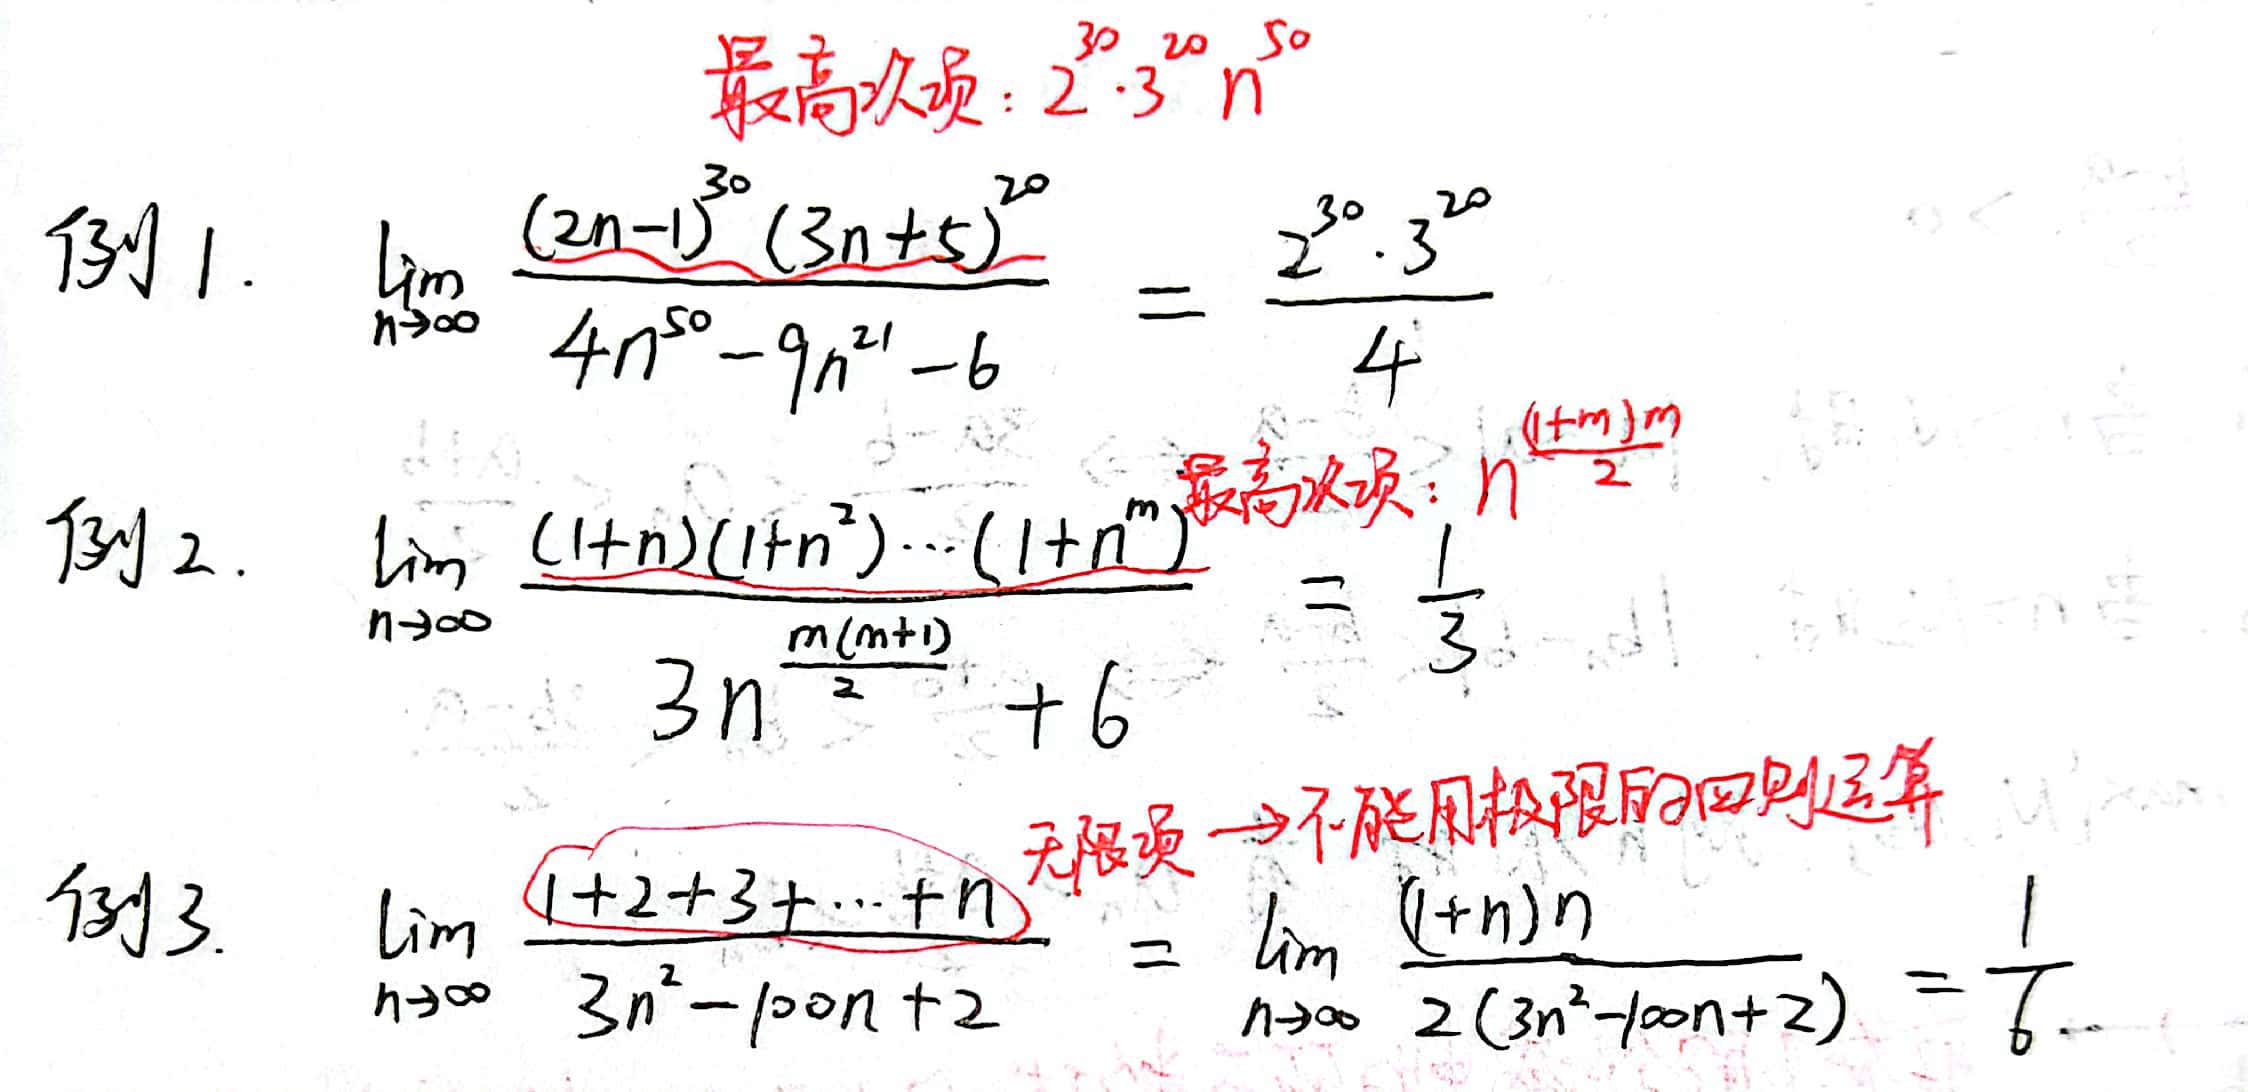 最高次项：2^30·3^20 n^50
例1. lim n→∞ (2n-1)^30 (3n+5)^20 / (4n^50 - 9n^21 - 6) = 2^30·3^20 / 4
最高次项：n^((1+m)m/2)
例2. lim n→∞ (1+n)(1+n^2)⋯(1+n^m) / (3n^(m(m+1)/2) + 6) = 1/3
无限项 → 不能用极限的四则运算
例3. lim n→∞ (1+2+3+⋯+n) / (3n^2 - 100n + 2) = lim n→∞ (1+n)n / (2(3n^2 - 100n + 2)) = 1/6